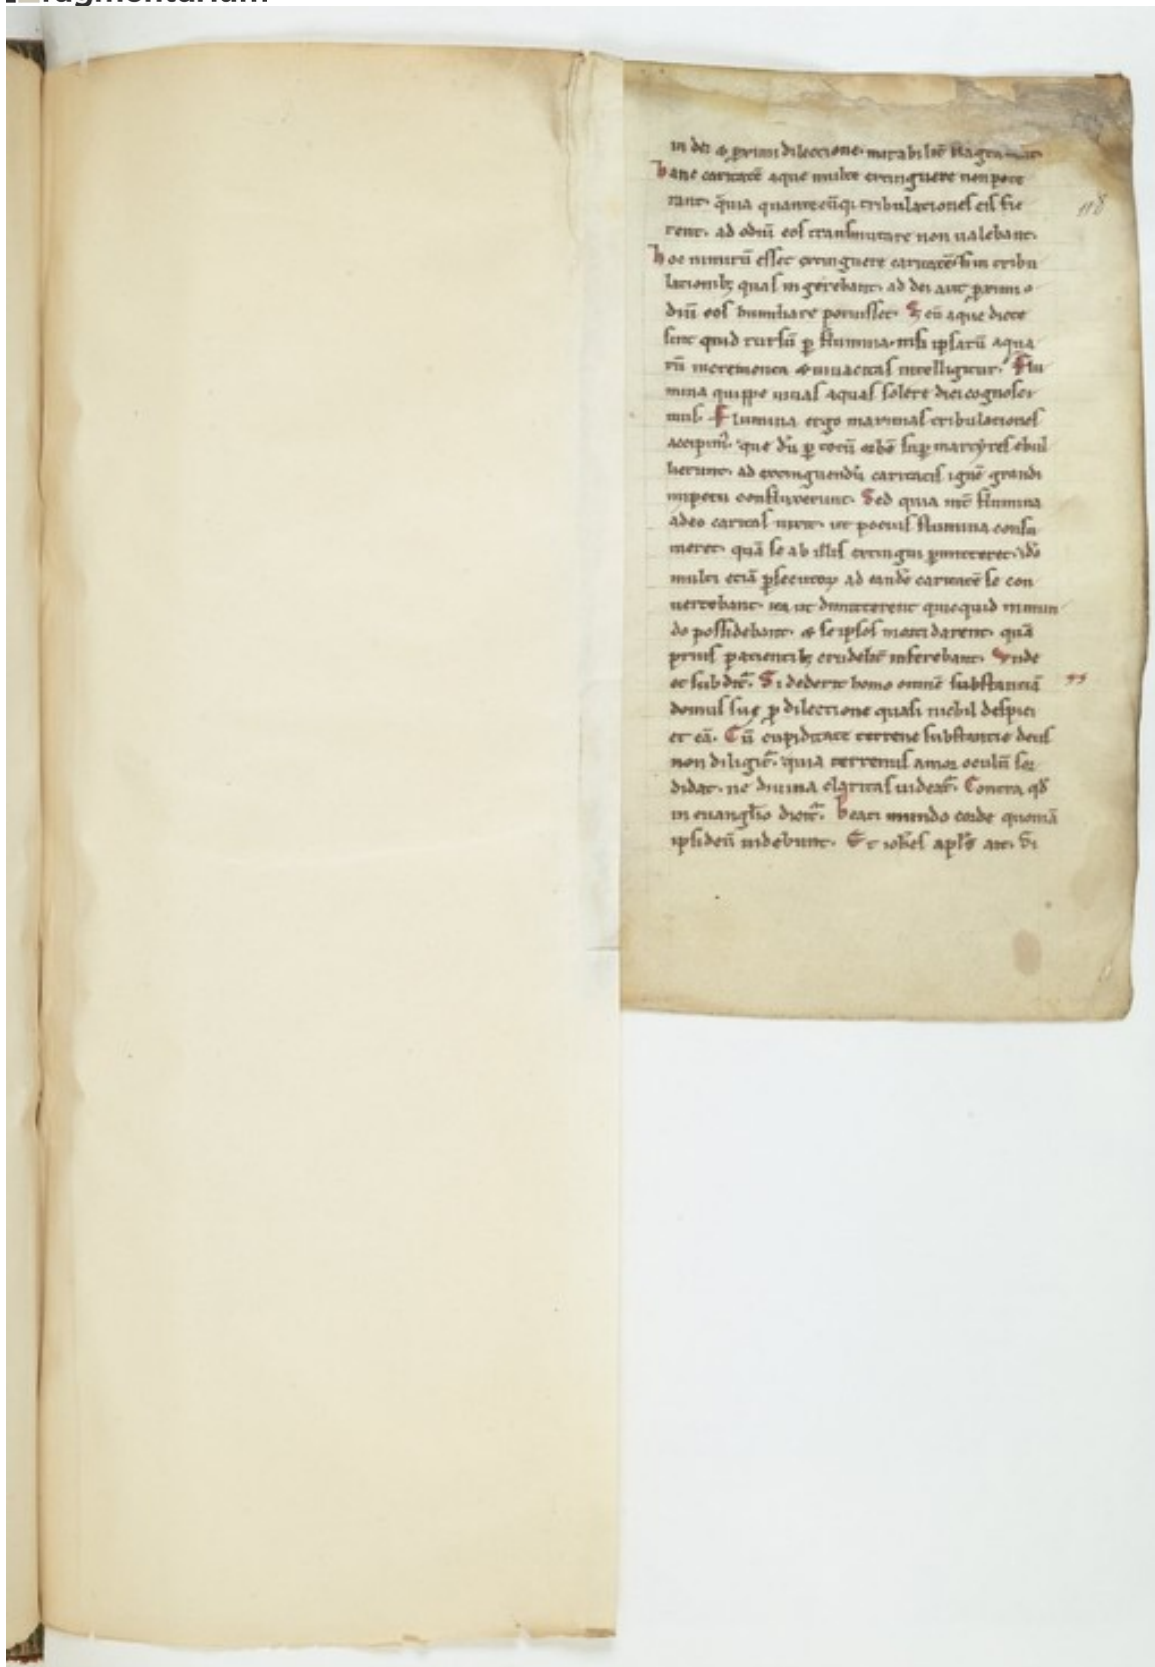 in dei & ꝓximi dilectione. mirabilit̄ flagra
hanc caritatē aque multe extinguere non pote
rant. quia quantecūq; tribulationes eis fie
rent. ad odiū eos transmutare non ualebant.
hoc nimirū esset extinguere caritatē si in tribu
lationib; quas ingerebant. ad dei aut ꝓximi o
diū eos humiliare potuisset. S; cū aque dicte
sint quid rursū ꝑ flumina. nisi ipsarū aqua
rū incrementa & uiuacitas intelligitur. Flu
mina quippe uiuas aquas solere dici cognosci
mus. Flumina ergo maximas tribulationes
accipim᷒. que dū ꝑ totū orbē suꝑ martyres ebul
lierunt. ad extinguendū caritatis ignē grandi
impetu confluxerunt. Sed quia nec flumina
adeo caritas ut potius flumina consu
meret. quā se ab illis extingui ꝑmitteret. ido
multi etiā ꝑsecutoꝝ ad eandē caritatē se con
uertebant. ita ut dimitterent quicquid in mun
do possidebant. & se ipsos morti darent. quā
prius patientib; crudelit̄ inferebant. Vnde
et subdit̄. Si dederit homo omnē substantiā
domus suę ꝓ dilectione quasi nichil despici
et eā. Cū cupiditate terrene substantie deus
non diligit̄. quia terrenus amor oculū sor
didat. ne diuina claritas uideat̄. Contra qd̄
in euanglio dicit̄. beati mundo corde quoniā
ipsi deū uidebunt. Et ioh̄es apl̄s ait. Si
118